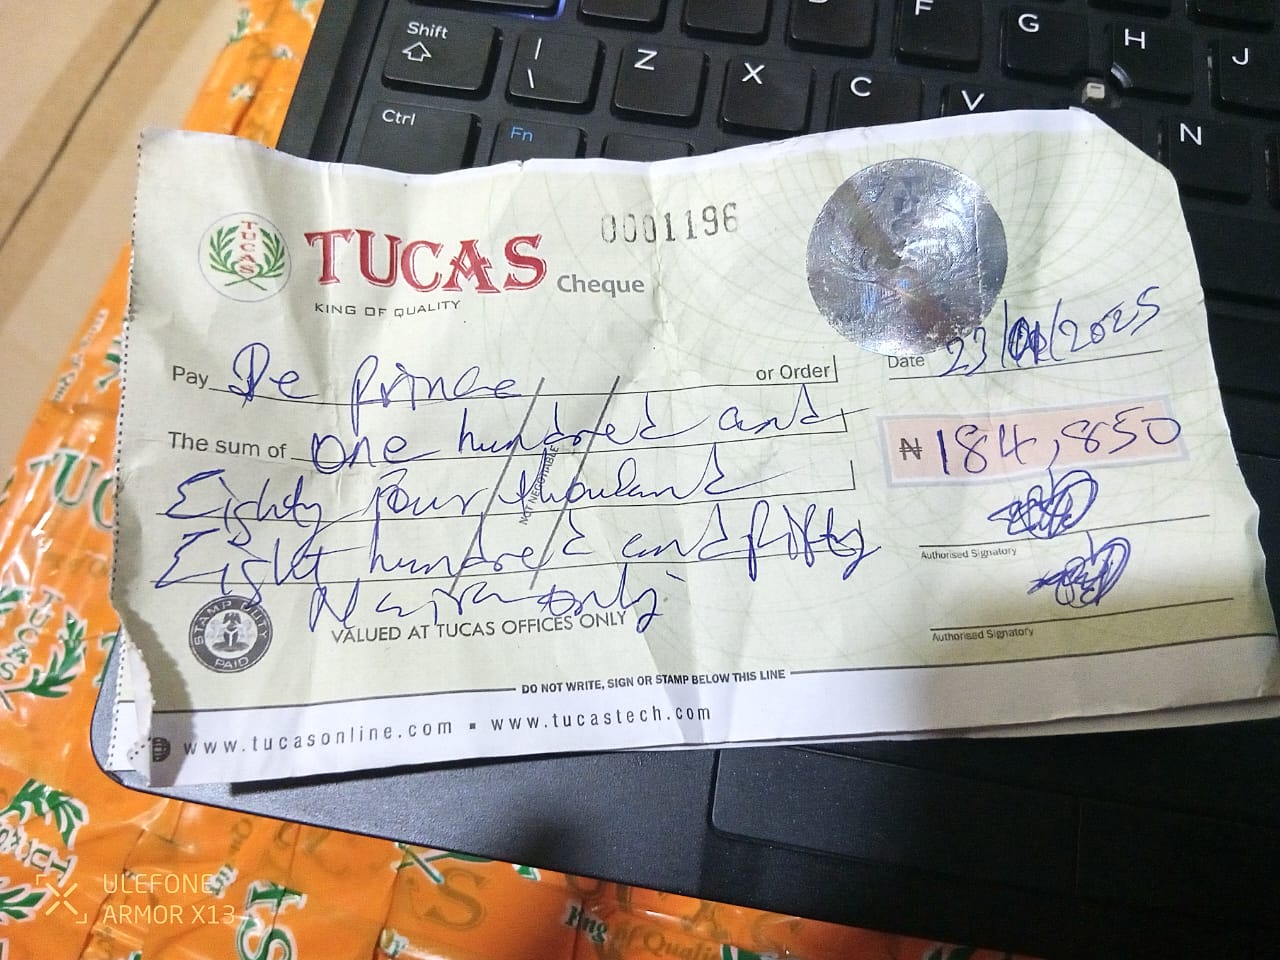 Shift
|
\
Z
X
C
V
F
G
H
J
N
Ctrl
Fn
TUCAS
TUCAS Cheque
KING OF QUALITY
0001196
Date 23/01/2025
Pay De Prince or Order
The sum of One hundred and
₦ 184,850
Eighty four thousand
NOT NEGOTIABLE
Eight hundred and fifty
Authorised Signatory
Naira only
VALUED AT TUCAS OFFICES ONLY
STAMP DUTY PAID
Authorised Signatory
DO NOT WRITE, SIGN OR STAMP BELOW THIS LINE
www.tucasonline.com ▪ www.tucastech.com
ULEFONE
ARMOR X13
King of Quali